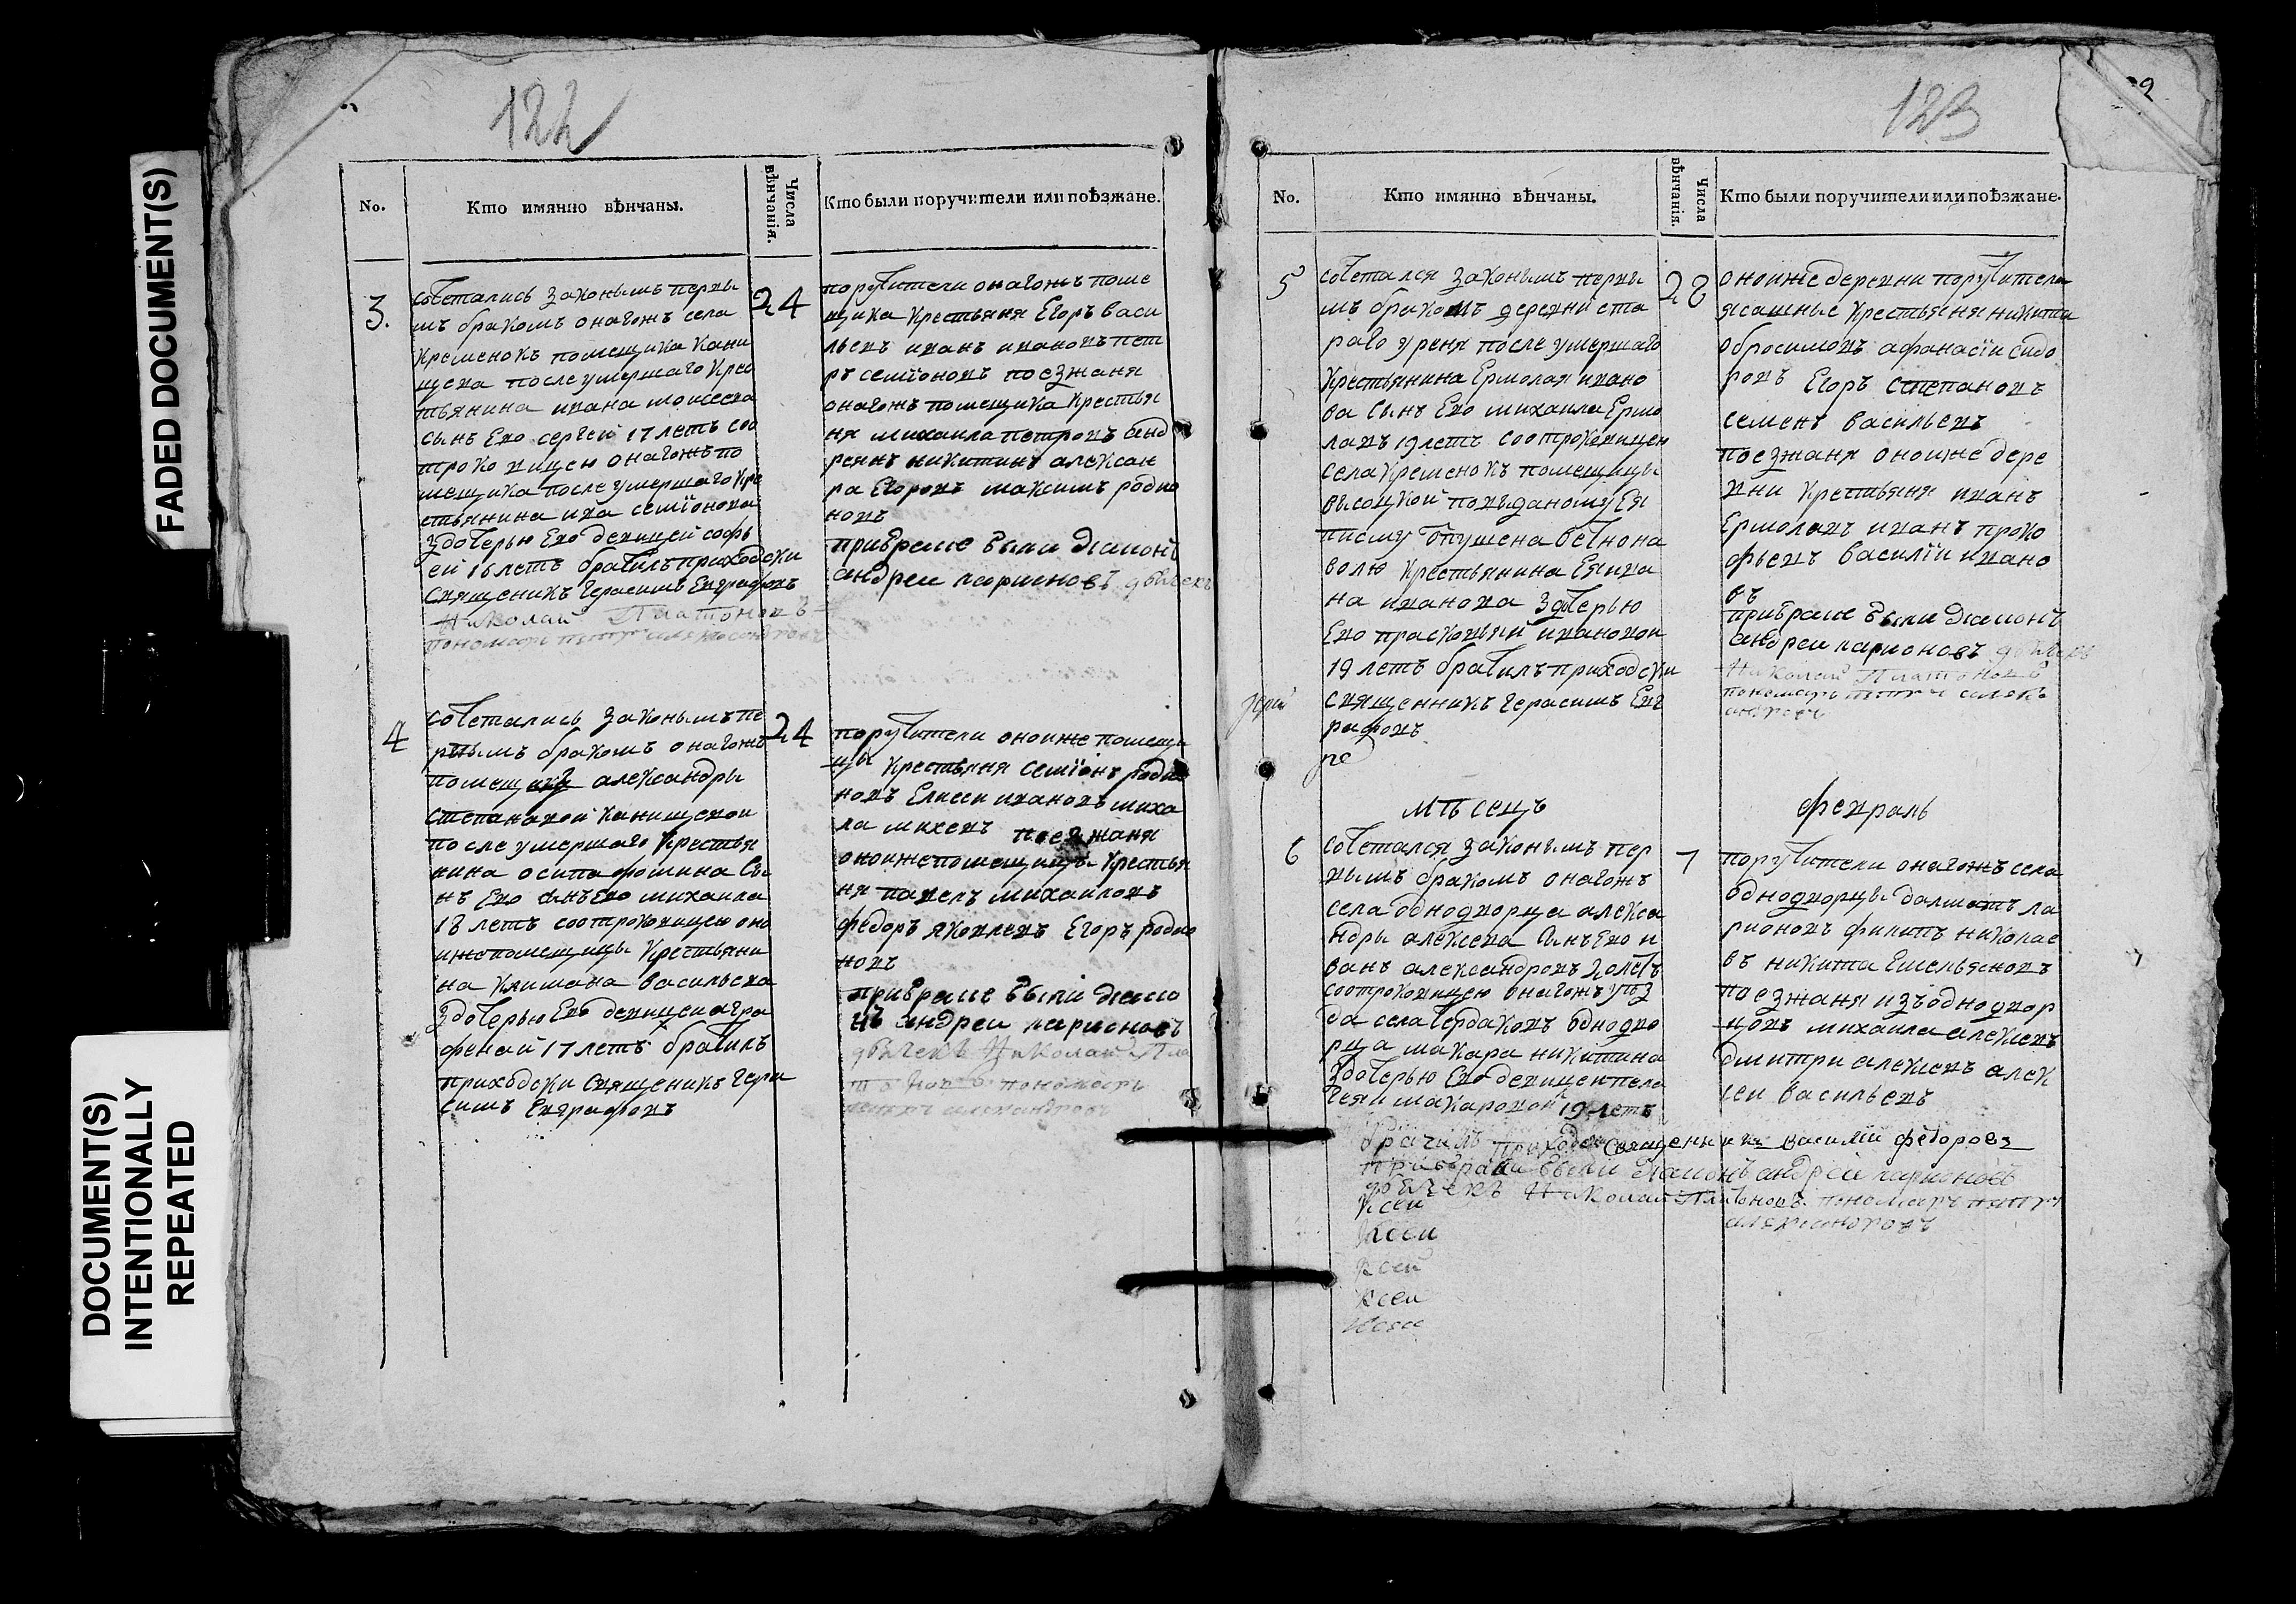 FADED DOCUMENT(S)
DOCUMENT(S)
INTENTIONALLY
REPEATED
122
No.
Кто имянно вѣнчаны.
Числа
вѣнчанія.
Кто были поручители или поѣзжане.
3.
сочетались законымъ первы
мъ бракомъ онагожъ села
Кременокъ помещика Кани
щева после умершаго Крес
тьянина ивана моисеева
сынъ Ево сергей 17 летъ соо
троковицею онагожъ по
мещика после умершаго Кре
стьянина ива семіонова
здочерью Ево девицей софь
ей 16 летъ брачилъ приходски
священикъ Герасимъ Евграфовъ
Николай Платоновъ
пономарь петръ александровъ
24
поручители онагожъ поме
щика Крестьяня Егоръ васи
льевъ иванъ ивановъ пет
ръ семіоновъ поезжаня
онагожъ помещика Крестья
ня михаила петровъ анд
реянъ никитинъ алексан
ра Егоровъ максимъ родио
новъ
прибраке были диаконъ
андреи ларионовъ дьячекъ
4
сочетались законымъ пе
рвымъ бракомъ онагожъ
помещицы александры
степановой Канищевои
после умершаго Крестья
нина осипа фомина Сы
нъ Ево сынъ Ево михаила
18 летъ соотроковицею оно
ижепомещицы Крестьяни
на Климана васильева
здочерью Ево девицеи агра
феной 17 летъ брачилъ
приходски священикъ Гера
симъ Евграфовъ
24
поручители оноиже помещи
цы Крестьяня семіонъ родио
новъ Елисеи ивановъ миха
ла михеевъ поезжаня
оноижепомещицы Крестья
ня павелъ михаиловъ
федоръ яковлевъ Егоръ родио
новъ
прибраке были диако
нъ андреи ларионовъ
дьячекъ Николай Пла
тоновъ пономарь
петръ александровъ
123
No.
Кто имянно вѣнчаны.
Числа
вѣнчанія.
Кто были поручители или поѣзжане.
5
сочетался законымъ первы
мъ бракомъ деревни ста
раго уреня после умершаго
Крестьянина Ермолая ивано
ва сынъ Ево михаила Ермо
лавъ 19 летъ соотроковицею
села Кременокъ помещицы
высоцкой повыданому Ея
писму отпушена вечнона
волю Крестьянина Еяива
на иванова здочерью
Ево прасковьей ивановои
19 летъ брачилъ приходски
священникъ Герасимъ Евг
рафовъ
28
оноиже деревни поручители
ясашные Крестьяня никита
обросимовъ афанасіи сидо
ровъ Егоръ степановъ
семенъ васильевъ
поезжаня оноиже дере
вни Крестьяня иванъ
Ермолавъ иванъ проко
фьевъ василіи ивано
въ
прибраке были диаконъ
андреи ларионовъ дьячекъ
Николай Платоновъ
пономарь петръ алекъ
андровъ
мѣсецъ
февраль
6
сочетался законымъ пер
вымъ бракомъ онагожъ
села однодворца алекса
ндры алексева сынъ Ево и
ванъ александровъ 20 летъ
соотроковицею онагожъ уез
да села Чердаковъ однодво
рца макара никитина
здочерью Ево девицеи пела
геяй макаровой 19 летъ
7
поручители онагожъ села
однодворцы далматъ ла
рионовъ филипъ николае
въ никита Емельяновъ
поезжаня изъоднодвор
цовъ михаила алексевъ
дмитри алексевъ алек
сеи васильевъ
брачилъ приходски священникъ василій федоровъ
прибраки были диаконъ андреи ларионовъ
дьячекъ Николай Платоновъ пономарь петръ
александровъ
ксеи
ксеи
ксеи
ксеи